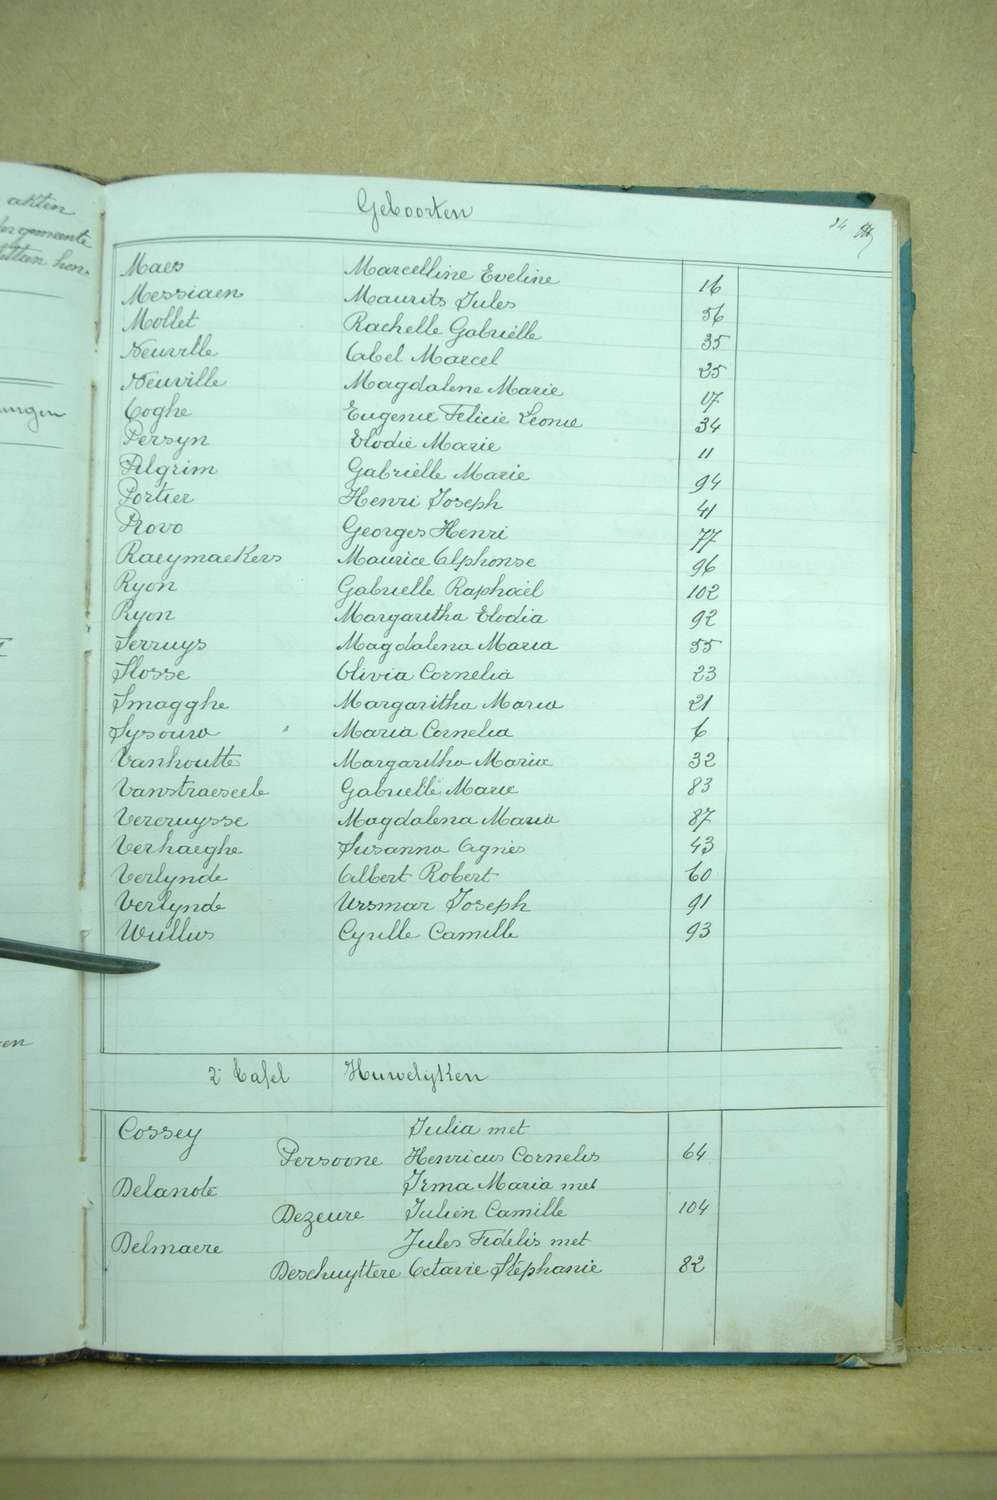 akten
dergemeente
Geboorten
24
Maes Marcelline Eveline 16
Messiaen Maurits Jules 56
Mollet Rachelle Gabriëlle 35
Neuville Abel Marcel 25
Neuville Magdalene Marie 17
Coghe Eugenie Felicie Leonie 34
Persyn Elodie Marie 11
Pilgrim Gabriëlle Marie 94
Portier Henri Joseph 41
Provo Georges Henri 77
Raeymaekers Maurice Alphonse 96
Ryon Gabrielle Raphaël 102
Ryon Margaritha Elodia 92
Serruys Magdalena Maria 55
Slosse Olivia Cornelia 23
Smagghe Margaritha Maria 21
Sysouw Maria Cornelia 6
Vanhoutte Margaritha Maria 32
Vanstraeseele Gabrielle Marie 83
Vercruysse Magdalena Maria 87
Verhaeghe Susanna Agnès 43
Verlynde Albert Robert 60
Verlynde Ursmar Joseph 91
Wullus Cyrille Camille 93
2e Tafel Huwelyken
Cossey Julia met
Persoone Henricus Cornelis 64
Delanote Irma Maria met
Dezeure Julien Camille 104
Delmaere Jules Fidelis met
Deschuyttere Octavie Stéphanie 82